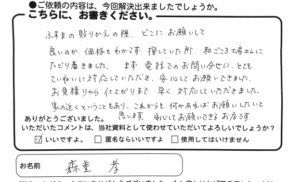 ●ご依頼の内容は、今回解決出来ましたでしょうか。
こちらに、お書きください。
ふすまの貼りかえの際、どこにお願いして
良いのか、価格もわからず 探していた所、和ごころ工房さんに
たどり着きました。 まず 電話でのお問い合せに、とても
ていねいに対応していただき、安心してお願いできました。
お見積りから仕上がりまで 早く対応していただきました。
家の近くということもあり、これからも何かあればお願いしたいと
ありがとうございました。 思います 安心してお願いできるお店です
いただいたコメントは、当社資料として使わせていただいてよろしいでしょうか？
☑いいですよ。 □匿名ならいいですよ □使用してはいけません
お名前 森重 孝